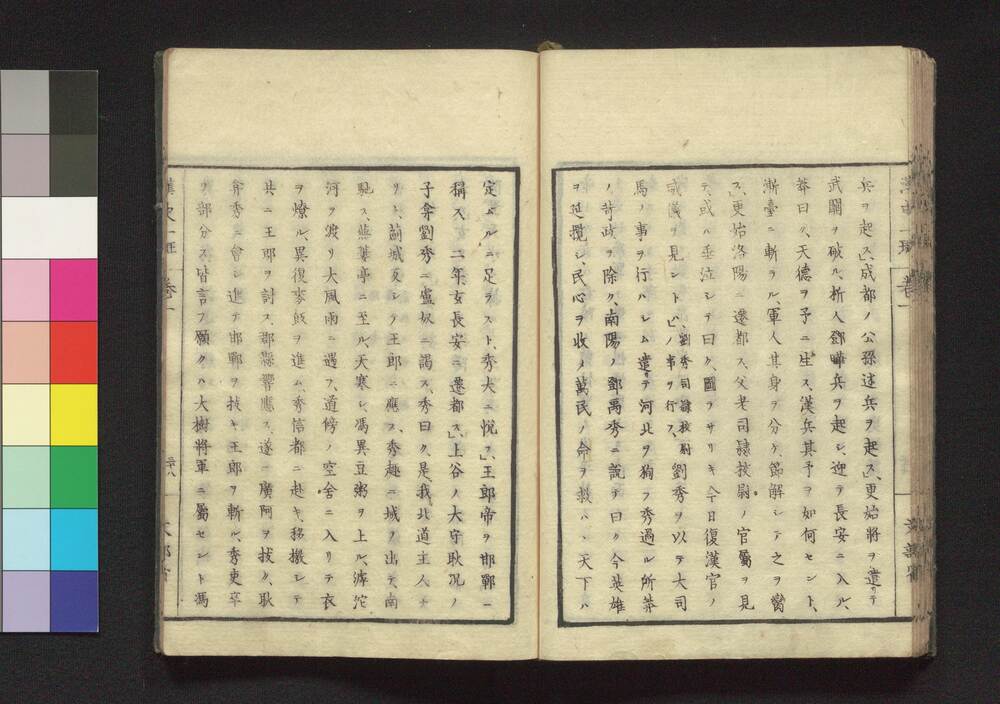 兵ヲ起ス」成都ノ公孫述兵ヲ起ス」更始将ヲ遣テ
武關ヲ破ル、析人鄧曄兵ヲ起シ、迎テ長安ニ入ル、
莽曰ク、天徳ヲ予ニ生ス、漢兵其予ヲ如何セント、
漸臺ニ斬ラル、軍人其身ヲ分ケ、節解シテ之ヲ臠
ス、更始洛陽ニ遷都ス、父老司隷校尉ノ官屬ヲ見
テ、或ハ垂泣シテ曰ク、圖ラサリキ今日復漢官ノ
威儀ヲ見ントハ」劉秀司隷校尉ノ事ヲ行フ、劉秀ヲ以テ大司
馬ノ事ヲ行ハレム遣テ河北ヲ狥フ秀過ル所莽
ノ苛政ヲ除ク、南陽ノ鄧禹秀ニ説テ曰ク今英雄
ヲ延攬シ、民心ヲ收メ萬民ノ命ヲ救ハヽ天下ハ
定ムルニ足ラスト、秀大ニ悦フ」王郎帝ヲ邯鄲ニ
稱ス」二年、玄長安ニ遷都ス」上谷ノ大守耿况ノ
子弇劉秀ニ盧奴ニ謁ス、秀曰ク、是我北道主人ナ
リト、薊城反シテ王郎ニ應ス、秀趣ニ城ヲ出テ、南
馳ス、蕪蔞亭ニ至ル、天寒シ、馮異豆粥ヲ上ル、滹沱
河ヲ渡リ大風雨ニ遇フ、道傍ノ空舎ニ入リテ衣
ヲ燎ル、異復麥飯ヲ進ム、秀信都ニ赴キ、移檄シテ
共ニ王郎ヲ討ス、郡縣響應ス、遂ニ廣阿ヲ拔ク、耿
弇秀ニ會シ進テ邯鄲ヲ拔キ王郎ヲ斬ル、秀吏卒
ヲ部分ス、皆言フ願クハ大樹将軍ニ屬セント馮
漢史一班 卷一 三十八